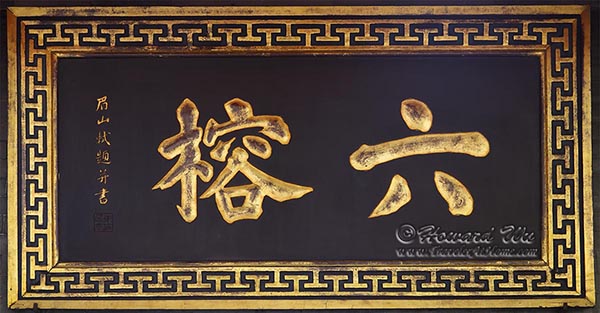 六榕
眉山軾題并書
©Howard Wu
www.Travel4AtHome.com